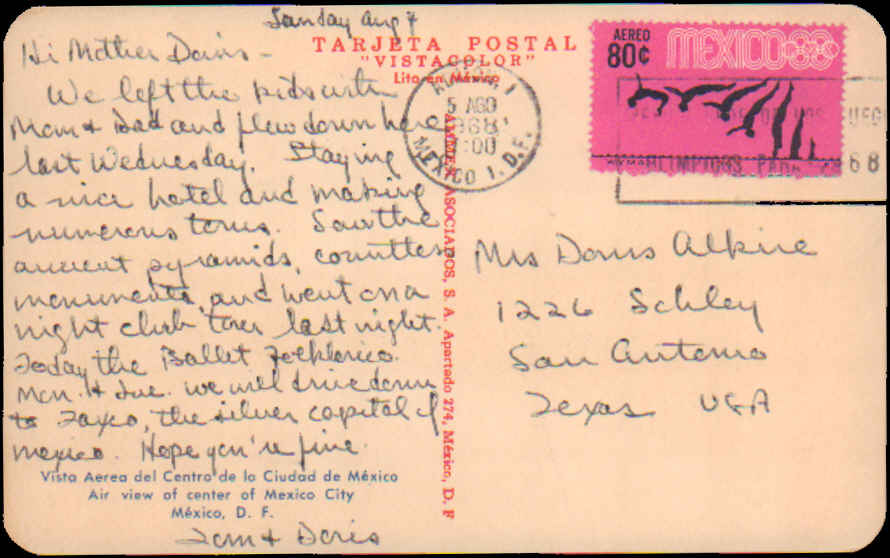 Sunday Aug 4
Hi Mother Davis -
We left the kids with
Mom & Dad and flew down here
last Wednesday. Staying
a nice hotel and making
numerous tours. Saw the
ancient pyramids, countless
monuments, and went on a
night club tour last night.
Today the Ballet Folklorico.
Mon. & Tue. we will drive down
to Taxco, the silver capital of
Mexico. Hope you're fine.
Vista Aerea del Centro de la Ciudad de México
Air view of center of Mexico City
México, D. F.
Tom & Doris
TARJETA POSTAL
"VISTACOLOR"
Lito en México
AMMEX ASOCIADOS, S. A. Apartado 274, México, D. F
5 AGO
1968
MEXICO 1, D.F.
AEREO
80¢
MEXICO68
68
Mrs Doris Alkire
1226 Schley
San Antonio
Texas USA